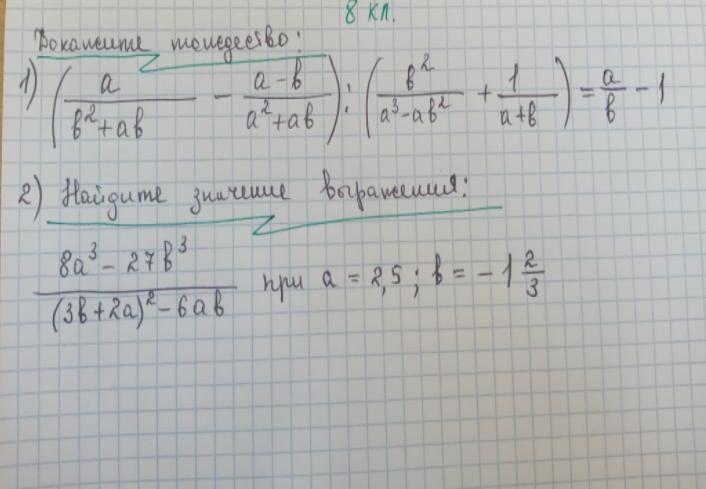 8 кл.
Докажите тождество:
1) (a/(b²+ab) − (a−b)/(a²+ab)) : (b²/(a³−ab²) + 1/(a+b)) = a/b − 1
2) Найдите значение выражения:
(8a³ − 27b³)/((3b+2a)² − 6ab) при a = 2,5; b = −1 2/3